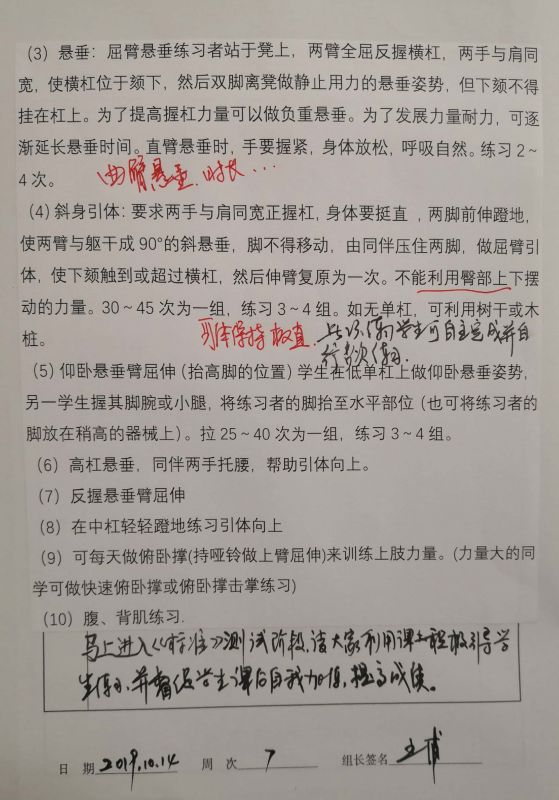 (3) 悬垂：屈臂悬垂练习者站于凳上，两臂全屈反握横杠，两手与肩同
宽，使横杠位于颏下，然后双脚离凳做静止用力的悬垂姿势，但下颏不得
挂在杠上。为了提高握杠力量可以做负重悬垂。为了发展力量耐力，可逐
渐延长悬垂时间。直臂悬垂时，手要握紧，身体放松，呼吸自然。练习2~
4次。
曲臂悬垂,时长...
(4) 斜身引体：要求两手与肩同宽正握杠，身体要挺直，两脚前伸蹬地，
使两臂与躯干成90°的斜悬垂，脚不得移动，由同伴压住两脚，做屈臂引
体，使下颏触到或超过横杠，然后伸臂复原为一次。不能利用臀部上下摆
动的力量。30~45次为一组，练习3~4组。如无单杠，可利用树干或木
桩。
身体保持 挺直.
上好练习学生可自主完成并自
行多次练习.
(5) 仰卧悬垂臂屈伸(抬高脚的位置)学生在低单杠上做仰卧悬垂姿势，
另一学生握其脚腕或小腿，将练习者的脚抬至水平部位(也可将练习者的
脚放在稍高的器械上)。拉25~40次为一组，练习3~4组。
(6) 高杠悬垂，同伴两手托腰，帮助引体向上。
(7) 反握悬垂臂屈伸
(8) 在中杠轻轻蹬地练习引体向上
(9) 可每天做俯卧撑(持哑铃做上臂屈伸)来训练上肢力量。(力量大的同
学可做快速俯卧撑或俯卧撑击掌练习)
(10) 腹、背肌练习.
马上进入《标准》测试阶段,请大家利用课上积极引导学
生练习,并督促学生课后自我加强,提高成绩。
日 期 2019.10.14 周 次 7 组长签名 王博